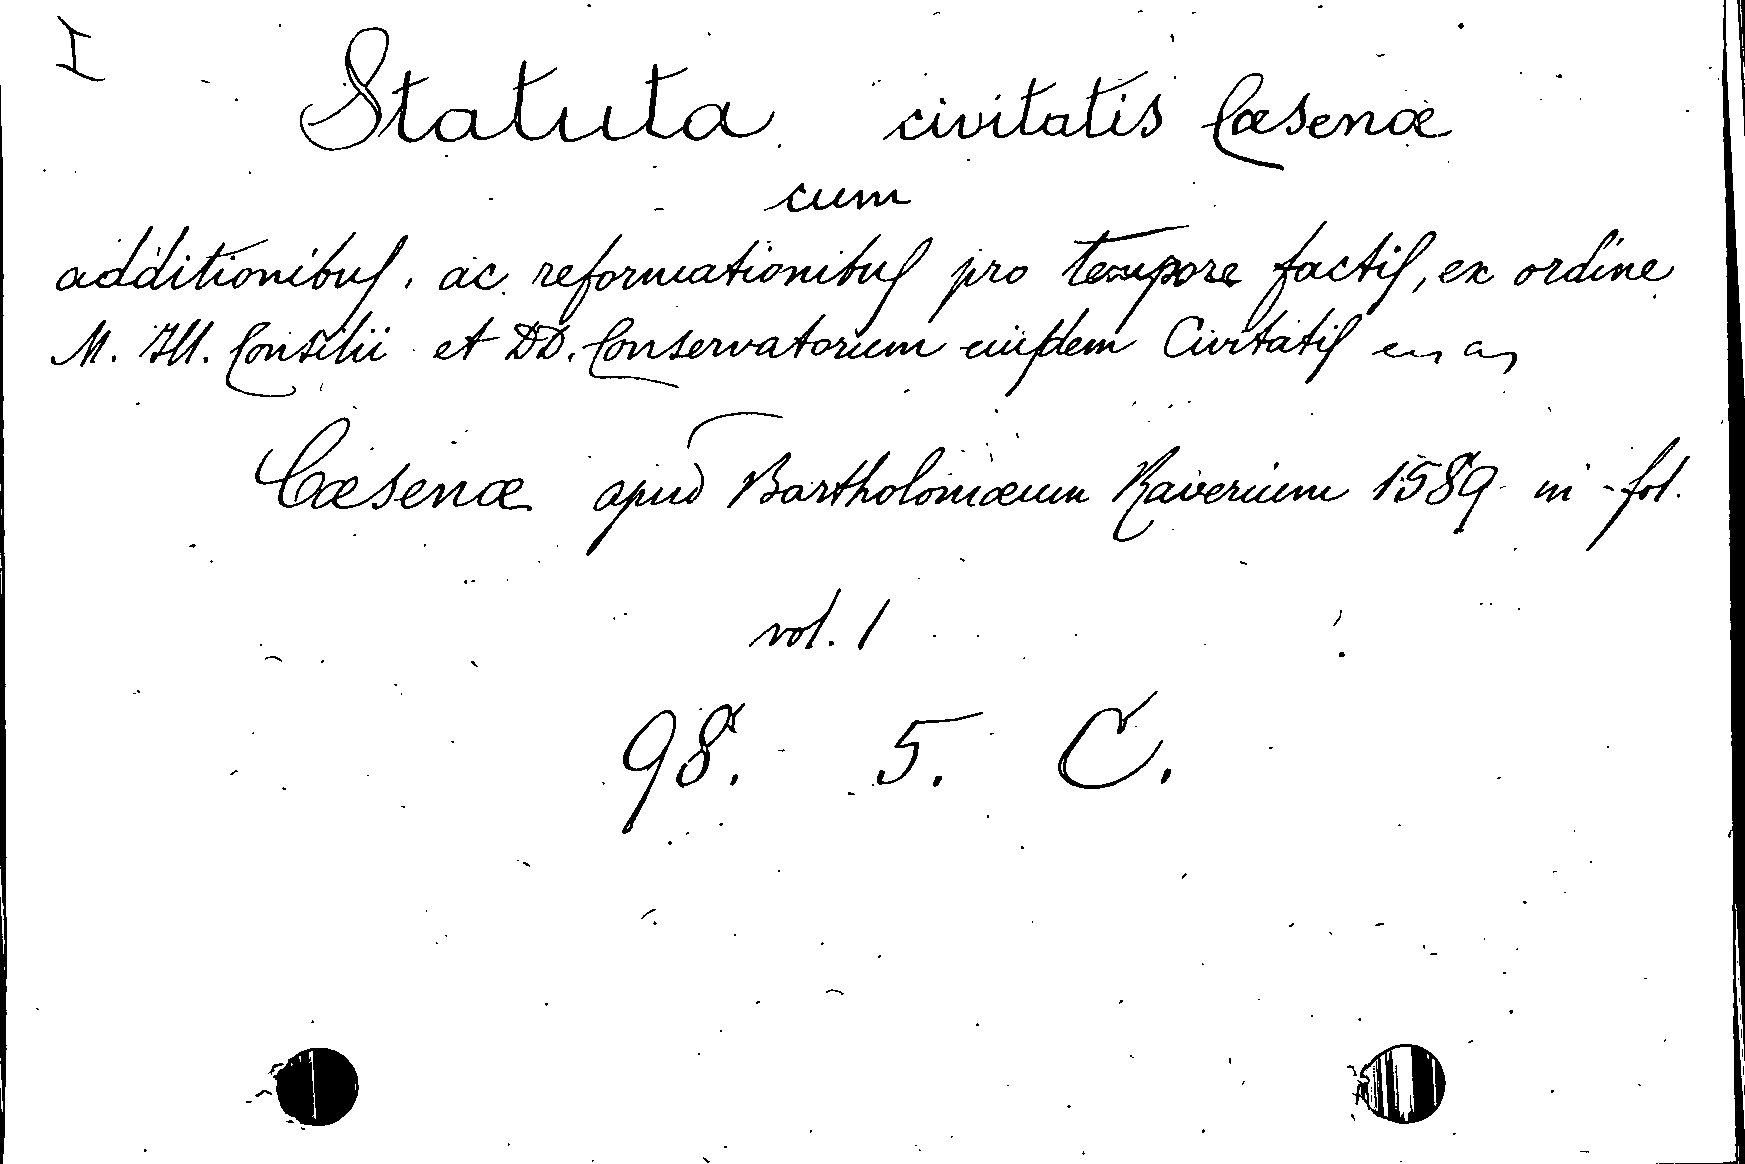 I
Statuta civitatis Cæsenæ
cum
additionibus, ac reformationibus pro tempore factis, ex ordine
M. Ill. Consilii et DD. Conservatorum eiusdem Civitatis
Cæsenæ apud Bartholomæum Raverium 1589 in fol.
vol. 1
98. 5. C.